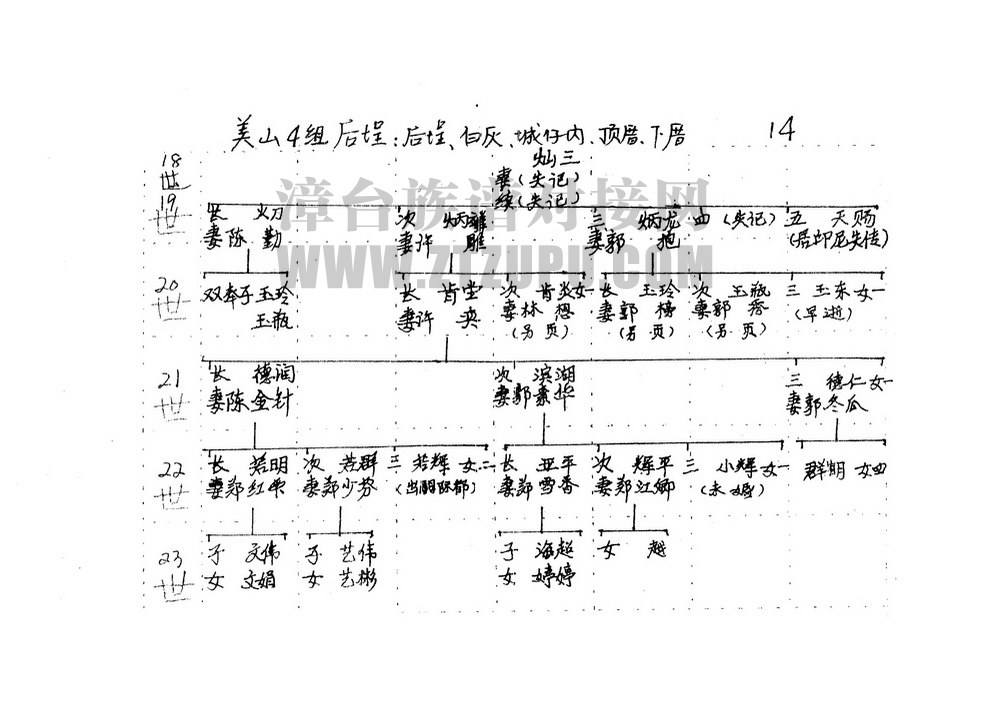 美山4组后埕:后埕、白灰、城仔内、顶厝、下厝 14
18世
灿三
妻(失记)
续(失记)
漳台族谱对接网
WWW.ZTZUPU.COM
19世
长 妻陈 勤
次 炳 妻许
三 炳龙 妻郭 抱
四 (失记)
五 天赐 (居印尼失传)
20世
双奉子玉玲
玉瓶
长 肯堂 妻许 英
次 肯炎女一 妻林 想 (另页)
长 玉玲 妻郭 榜 (另页)
次 玉瓶 妻郭 秀 (另页)
三 玉东女一 (早逝)
21世
长 德润 妻陈金针
次 滨湖 妻郭素华
三 德仁女一 妻郭冬瓜
22世
长 若明 妻郑红
次 若群 妻郑少芬
三 若辉 女二
长 亚平 妻郑雪香
次 辉平 妻郑江卿
三 小辉女一 (未婚)
群明 女四
23世
子 文伟
女 文娟
子 艺伟
女 艺彬
子 海超
女 婷婷
女 越